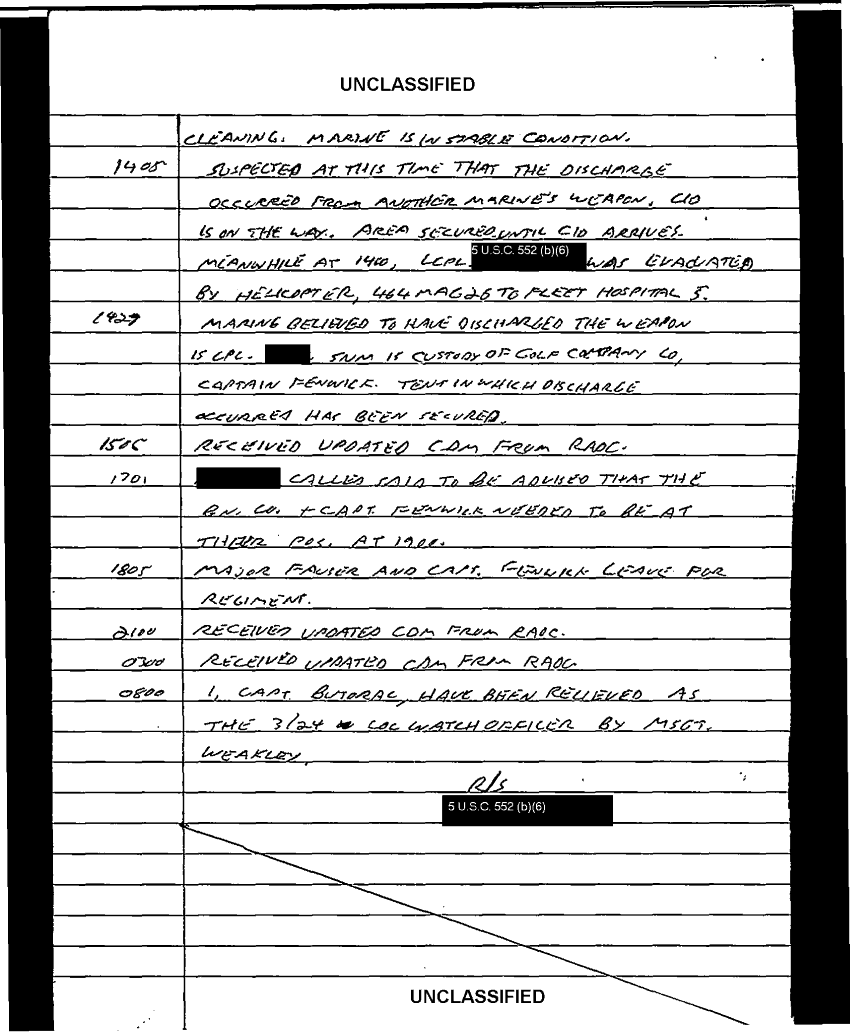 UNCLASSIFIED
CLEANING. MARINE IS IN STABLE CONDITION.
1405 SUSPECTED AT THIS TIME THAT THE DISCHARGE
OCCURRED FROM ANOTHER MARINE'S WEAPON. CID
IS ON THE WAY. AREA SECURED UNTIL CID ARRIVES.
5 U.S.C. 552 (b)(6)
MEANWHILE AT 1400, LCPL WAS EVACUATED
BY HELICOPTER, 464 MAG 26 TO FLEET HOSPITAL 5.
1427 MARINE BELIEVED TO HAVE DISCHARGED THE WEAPON
IS CPL. . SNM IS CUSTODY OF GOLF COMPANY CO,
CAPTAIN FENWICK. TENT IN WHICH DISCHARGE
OCCURRED HAS BEEN SECURED.
1505 RECEIVED UPDATED CDM FROM RAOC.
1701 CALLED SAID TO BE ADVISED THAT THE
BN. CO. + CAPT. FENWICK NEEDED TO BE AT
THEIR POS. AT 1900.
1805 MAJOR FAUSER AND CAPT. FENWICK LEAVE FOR
REGIMENT.
2100 RECEIVED UPDATED CDM FROM RAOC.
0300 RECEIVED UPDATED CDM FROM RAOC
0800 I, CAPT. BUTORAC, HAVE BEEN RELIEVED AS
THE 3/24 COC WATCH OFFICER BY MSGT.
WEAKLEY.
R/S
5 U.S.C. 552 (b)(6)
UNCLASSIFIED